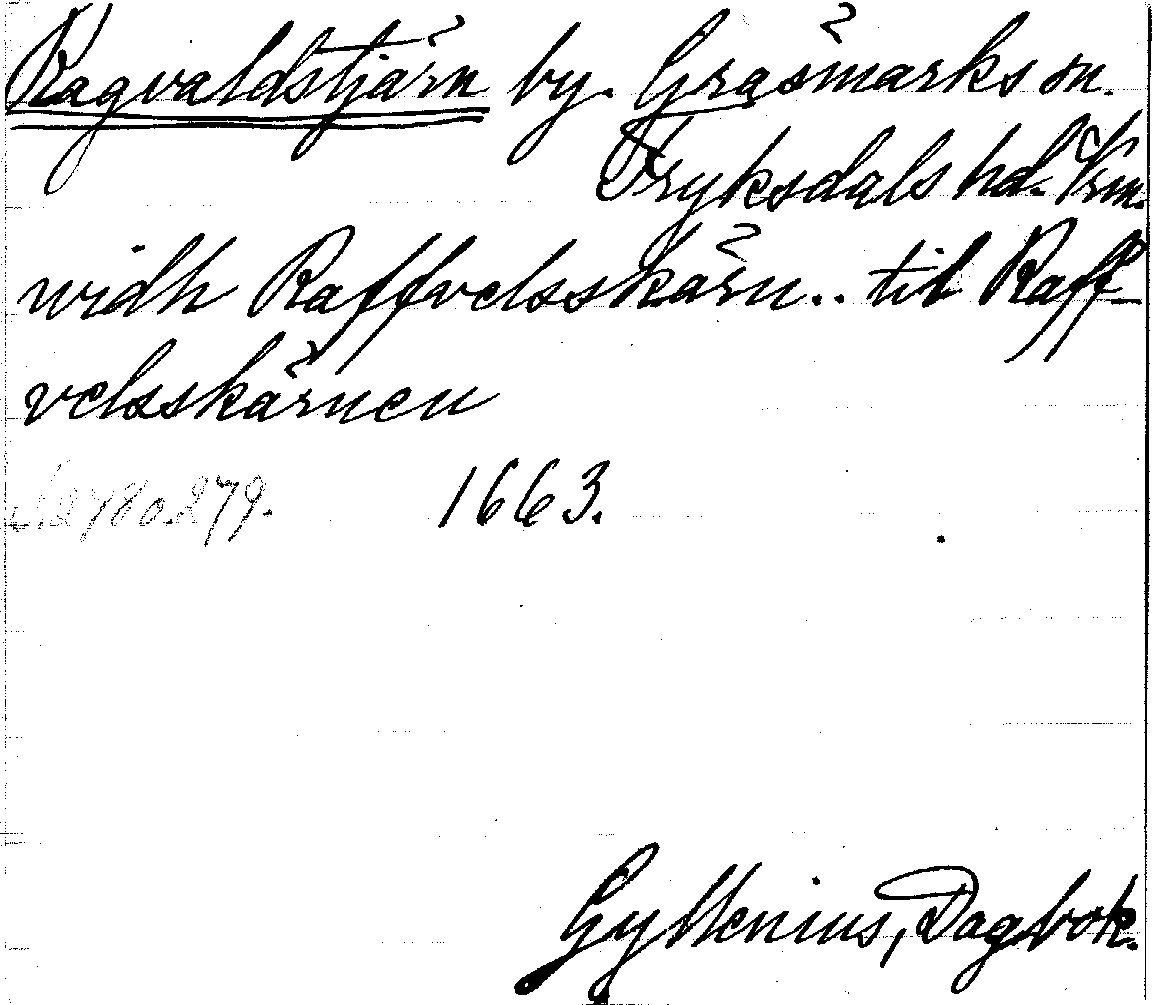 Ragvaldstjärn by. Gräsmarks sn.
Fryksdals hd. Vrm.
widh Raffvelsskärn.. til Raff-
velsskärnen
1663.
Gyllenius, Dagbok.